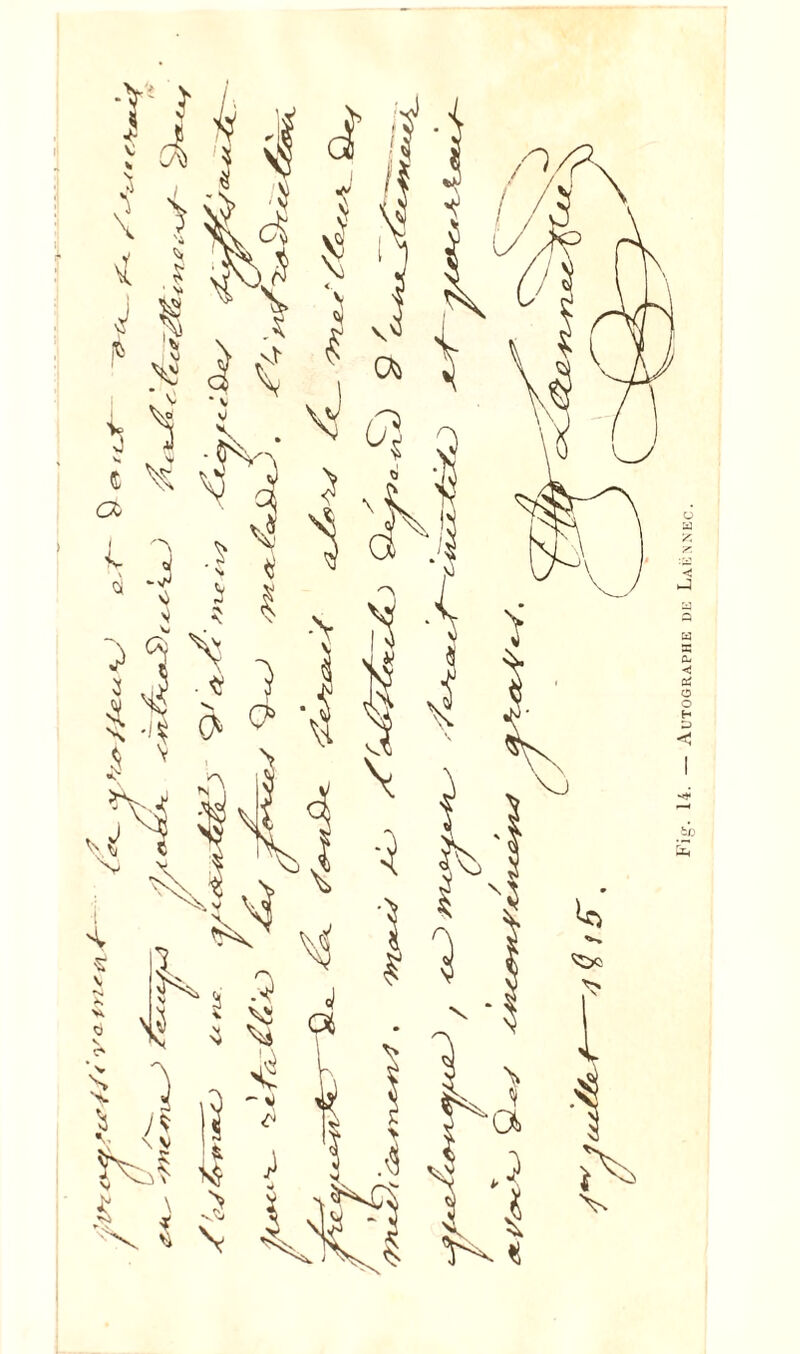 progressivement la grosseur et dont on se servirait
en même temps pour introduire habituellement dans
l'estomac une quantité d'alimens liquides suffisante
pour rétablir les forces du malade. l'introduction
fréquente de la sonde serait alors le meilleur des
médicamens. mais si l'obstacle dépend d'une tumeur
quelconque, ce moyen serait inutile et pourrait
avoir des inconvéniens graves.
Laennec
1er juillet 1815.
Fig. 14. — Autographe de Laënnec.